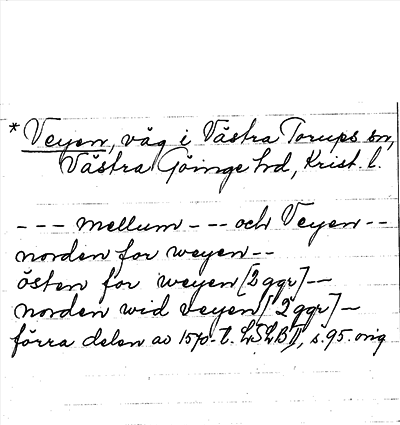 * Veyen, väg i Västra Torups sn,
Västra Göinge hd, Krist. l.
--- mellum --- och Veyen --
norden for weyen --
östen for weyen [2 ggr] --
norden wid veyen [2 ggr] --
förra delen av 1570-t. LSLB II, s. 95. orig